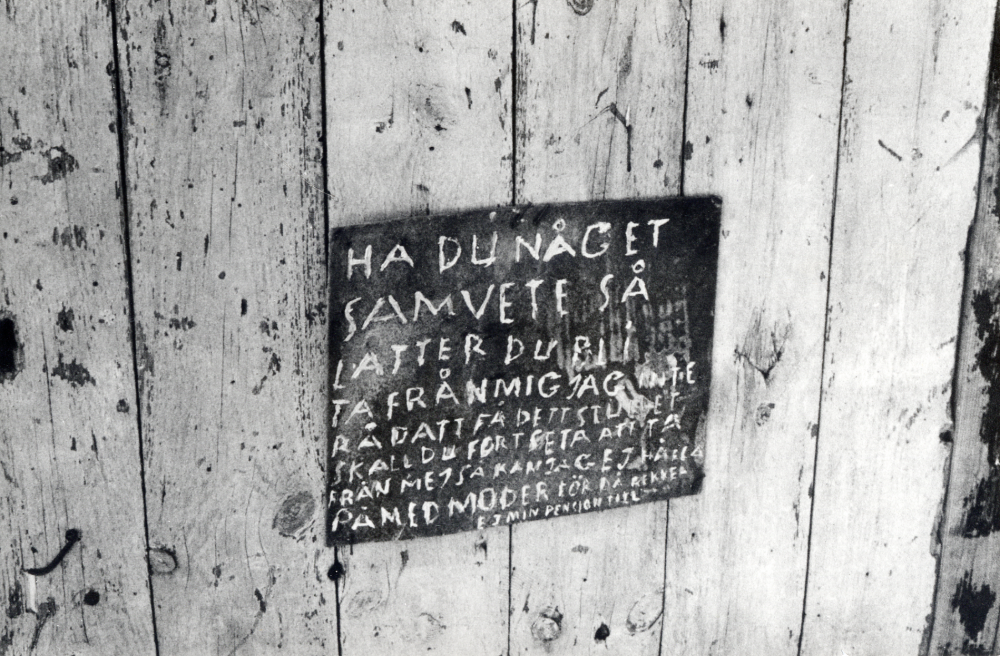 HA DU NÅGET
SAMVETE SÅ
LATTER DU BLI
TA FRÅN MIG JAG INTE
RÅD ATT FÅ DETT
SKALL DU FORTSETA ATT TA
FRÅN MEJ SÅ KAN JAG EJ HÅLLA
PÅ MED MÖDER FÖR DÅ REKKER
EJ MIN PENSION TILL